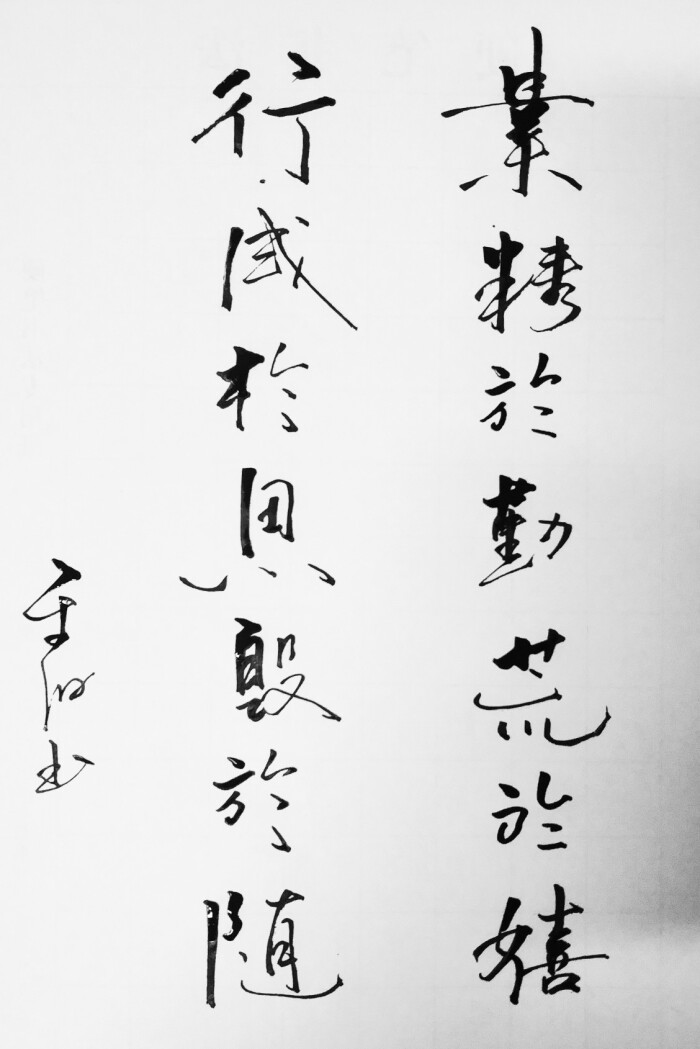 業精於勤荒於嬉
行成於思毀於随
書